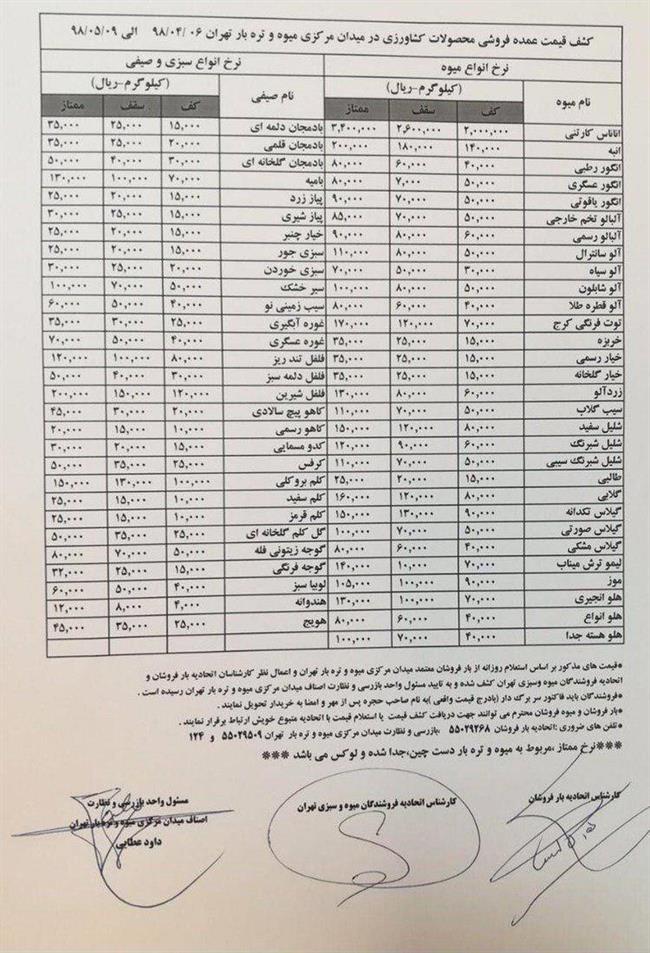 کشف قیمت عمده فروشی محصولات کشاورزی در میدان مرکزی میوه و تره بار تهران ۹۸/۰۴/۰۶ الی ۹۸/۰۵/۰۹
نرخ انواع میوه نرخ انواع سبزی و صیفی
نام میوه (کیلوگرم-ریال) نام صیفی (کیلوگرم-ریال)
کف سقف ممتاز کف سقف ممتاز
اناناس کارتنی ۲,۰۰۰,۰۰۰ ۲,۶۰۰,۰۰۰ ۳,۴۰۰,۰۰۰ بادمجان دلمه ای ۱۵,۰۰۰ ۲۵,۰۰۰ ۳۵,۰۰۰
انبه ۱۴۰,۰۰۰ ۱۸۰,۰۰۰ ۲۰۰,۰۰۰ بادمجان قلمی ۲۰,۰۰۰ ۲۵,۰۰۰ ۳۵,۰۰۰
انگور رطبی ۴۰,۰۰۰ ۶۰,۰۰۰ ۸۰,۰۰۰ بادمجان گلخانه ای ۳۰,۰۰۰ ۴۰,۰۰۰ ۵۰,۰۰۰
انگور عسگری ۵۰,۰۰۰ ۷,۰۰۰ ۸۰,۰۰۰ بامیه ۷۰,۰۰۰ ۱۰۰,۰۰۰ ۱۳۰,۰۰۰
انگور یاقوتی ۵۰,۰۰۰ ۷۰,۰۰۰ ۹۰,۰۰۰ پیاز زرد ۱۵,۰۰۰ ۲۰,۰۰۰ ۲۵,۰۰۰
آلبالو تخم خارجی ۵۰,۰۰۰ ۷۰,۰۰۰ ۸۵,۰۰۰ پیاز شیری ۱۵,۰۰۰ ۲۵,۰۰۰ ۳۰,۰۰۰
آلبالو رسمی ۶۰,۰۰۰ ۸۰,۰۰۰ ۹۰,۰۰۰ خیار چنبر ۱۵,۰۰۰ ۲۰,۰۰۰ ۲۵,۰۰۰
آلو سانترال ۵۰,۰۰۰ ۸۰,۰۰۰ ۱۱۰,۰۰۰ سبزی جور ۱۵,۰۰۰ ۲۰,۰۰۰ ۲۵,۰۰۰
آلو سیاه ۳۰,۰۰۰ ۵۰,۰۰۰ ۷۰,۰۰۰ سبزی خوردن ۲۰,۰۰۰ ۲۵,۰۰۰ ۳۰,۰۰۰
آلو شابلون ۵۰,۰۰۰ ۸۰,۰۰۰ ۱۰۰,۰۰۰ سیر خشک ۵۰,۰۰۰ ۷۰,۰۰۰ ۱۰۰,۰۰۰
آلو قطره طلا ۴۰,۰۰۰ ۶۰,۰۰۰ ۸۰,۰۰۰ سیب زمینی نو ۴۰,۰۰۰ ۵۰,۰۰۰ ۶۰,۰۰۰
توت فرنگی کرج ۷۰,۰۰۰ ۱۲۰,۰۰۰ ۱۷۰,۰۰۰ غوره آبگیری ۲۵,۰۰۰ ۳۰,۰۰۰ ۳۵,۰۰۰
خربزه ۱۵,۰۰۰ ۲۵,۰۰۰ ۳۵,۰۰۰ غوره عسگری ۴۰,۰۰۰ ۵۰,۰۰۰ ۷۰,۰۰۰
خیار رسمی ۱۵,۰۰۰ ۲۵,۰۰۰ ۳۵,۰۰۰ فلفل تند ریز ۸۰,۰۰۰ ۱۰۰,۰۰۰ ۱۲۰,۰۰۰
خیار گلخانه ۱۵,۰۰۰ ۲۵,۰۰۰ ۳۵,۰۰۰ فلفل دلمه سبز ۳۰,۰۰۰ ۴۰,۰۰۰ ۵۰,۰۰۰
زردآلو ۶۰,۰۰۰ ۸۰,۰۰۰ ۱۳۰,۰۰۰ فلفل شیرین ۱۲۰,۰۰۰ ۱۵۰,۰۰۰ ۲۰۰,۰۰۰
سیب گلاب ۵۰,۰۰۰ ۷۰,۰۰۰ ۱۱۰,۰۰۰ کاهو پیچ سالادی ۲۰,۰۰۰ ۳۰,۰۰۰ ۴۵,۰۰۰
شلیل سفید ۸۰,۰۰۰ ۱۲۰,۰۰۰ ۱۵۰,۰۰۰ کاهو رسمی ۱۰,۰۰۰ ۱۵,۰۰۰ ۲۰,۰۰۰
شلیل شبرنگ ۶۰,۰۰۰ ۹۰,۰۰۰ ۱۲۰,۰۰۰ کدو مسمایی ۱۵,۰۰۰ ۲۰,۰۰۰ ۳۰,۰۰۰
شلیل شبرنگ سیبی ۵۰,۰۰۰ ۷۰,۰۰۰ ۱۱۰,۰۰۰ کرفس ۲۵,۰۰۰ ۳۵,۰۰۰ ۵۰,۰۰۰
طالبی ۱۵,۰۰۰ ۲۰,۰۰۰ ۲۵,۰۰۰ کلم بروکلی ۱۰۰,۰۰۰ ۱۳۰,۰۰۰ ۱۵۰,۰۰۰
گلابی ۸۰,۰۰۰ ۱۲۰,۰۰۰ ۱۶۰,۰۰۰ کلم سفید ۱۰,۰۰۰ ۱۵,۰۰۰ ۲۵,۰۰۰
گیلاس تکدانه ۹۰,۰۰۰ ۱۳۰,۰۰۰ ۱۵۰,۰۰۰ کلم قرمز ۱۰,۰۰۰ ۱۵,۰۰۰ ۲۵,۰۰۰
گیلاس صورتی ۵۰,۰۰۰ ۷۰,۰۰۰ ۱۰۰,۰۰۰ گل کلم گلخانه ای ۲۵,۰۰۰ ۳۵,۰۰۰ ۵۰,۰۰۰
گیلاس مشکی ۴۰,۰۰۰ ۶۰,۰۰۰ ۸۰,۰۰۰ گوجه زیتونی فله ۵۰,۰۰۰ ۷۰,۰۰۰ ۸۰,۰۰۰
لیمو ترش میناب ۷۰,۰۰۰ ۱۰,۰۰۰ ۱۴۰,۰۰۰ گوجه فرنگی ۱۵,۰۰۰ ۲۵,۰۰۰ ۳۲,۰۰۰
موز ۹۰,۰۰۰ ۱۰۰,۰۰۰ ۱۰۵,۰۰۰ لوبیا سبز ۴۰,۰۰۰ ۵۰,۰۰۰ ۶۰,۰۰۰
هلو انجیری ۷۰,۰۰۰ ۱۰۰,۰۰۰ ۱۳۰,۰۰۰ هندوانه ۴,۰۰۰ ۸,۰۰۰ ۱۲,۰۰۰
هلو انواع ۴۰,۰۰۰ ۶۰,۰۰۰ ۸۰,۰۰۰ هویج ۲۵,۰۰۰ ۳۵,۰۰۰ ۴۵,۰۰۰
هلو هسته جدا ۴۰,۰۰۰ ۷۰,۰۰۰ ۱۰۰,۰۰۰
*قیمت های مذکور بر اساس استعلام روزانه از بار فروشان معتمد میدان مرکزی میوه و تره بار تهران و اعمال نظر کارشناسان اتحادیه بار فروشان و
اتحادیه فروشندگان میوه وسبزی تهران کشف شده و به تایید مسئول واحد بازرسی و نظارت اصناف میدان مرکزی میوه و تره بار تهران رسیده است .
*فروشندگان باید فاکتور سر برگ دار (بادرج قیمت واقعی )به نام صاحب حجره پس از مهر و امضا به خریدار تحویل نمایند .
*بار فروشان و میوه فروشان محترم می توانند جهت دریافت کشف قیمت یا استعلام قیمت با اتحادیه متبوع خویش ارتباط برقرار نمایند .
*تلفن های ضروری :اتحادیه بار فروشان ۵۵۰۲۹۲۶۸ ,بازرسی و نظارت میدان مرکزی میوه و تره بار تهران ۵۵۰۲۹۵۰۹ و ۱۲۴
***نرخ ممتاز ،مربوط به میوه و تره بار دست چین،جدا شده و لوکس می باشد ***
کارشناس اتحادیه بار فروشان
کارشناس اتحادیه فروشندگان میوه و سبزی تهران
مسئول واحد بازرسی و نظارت
اصناف میدان مرکزی میوه و تره بار تهران
داود عطایی